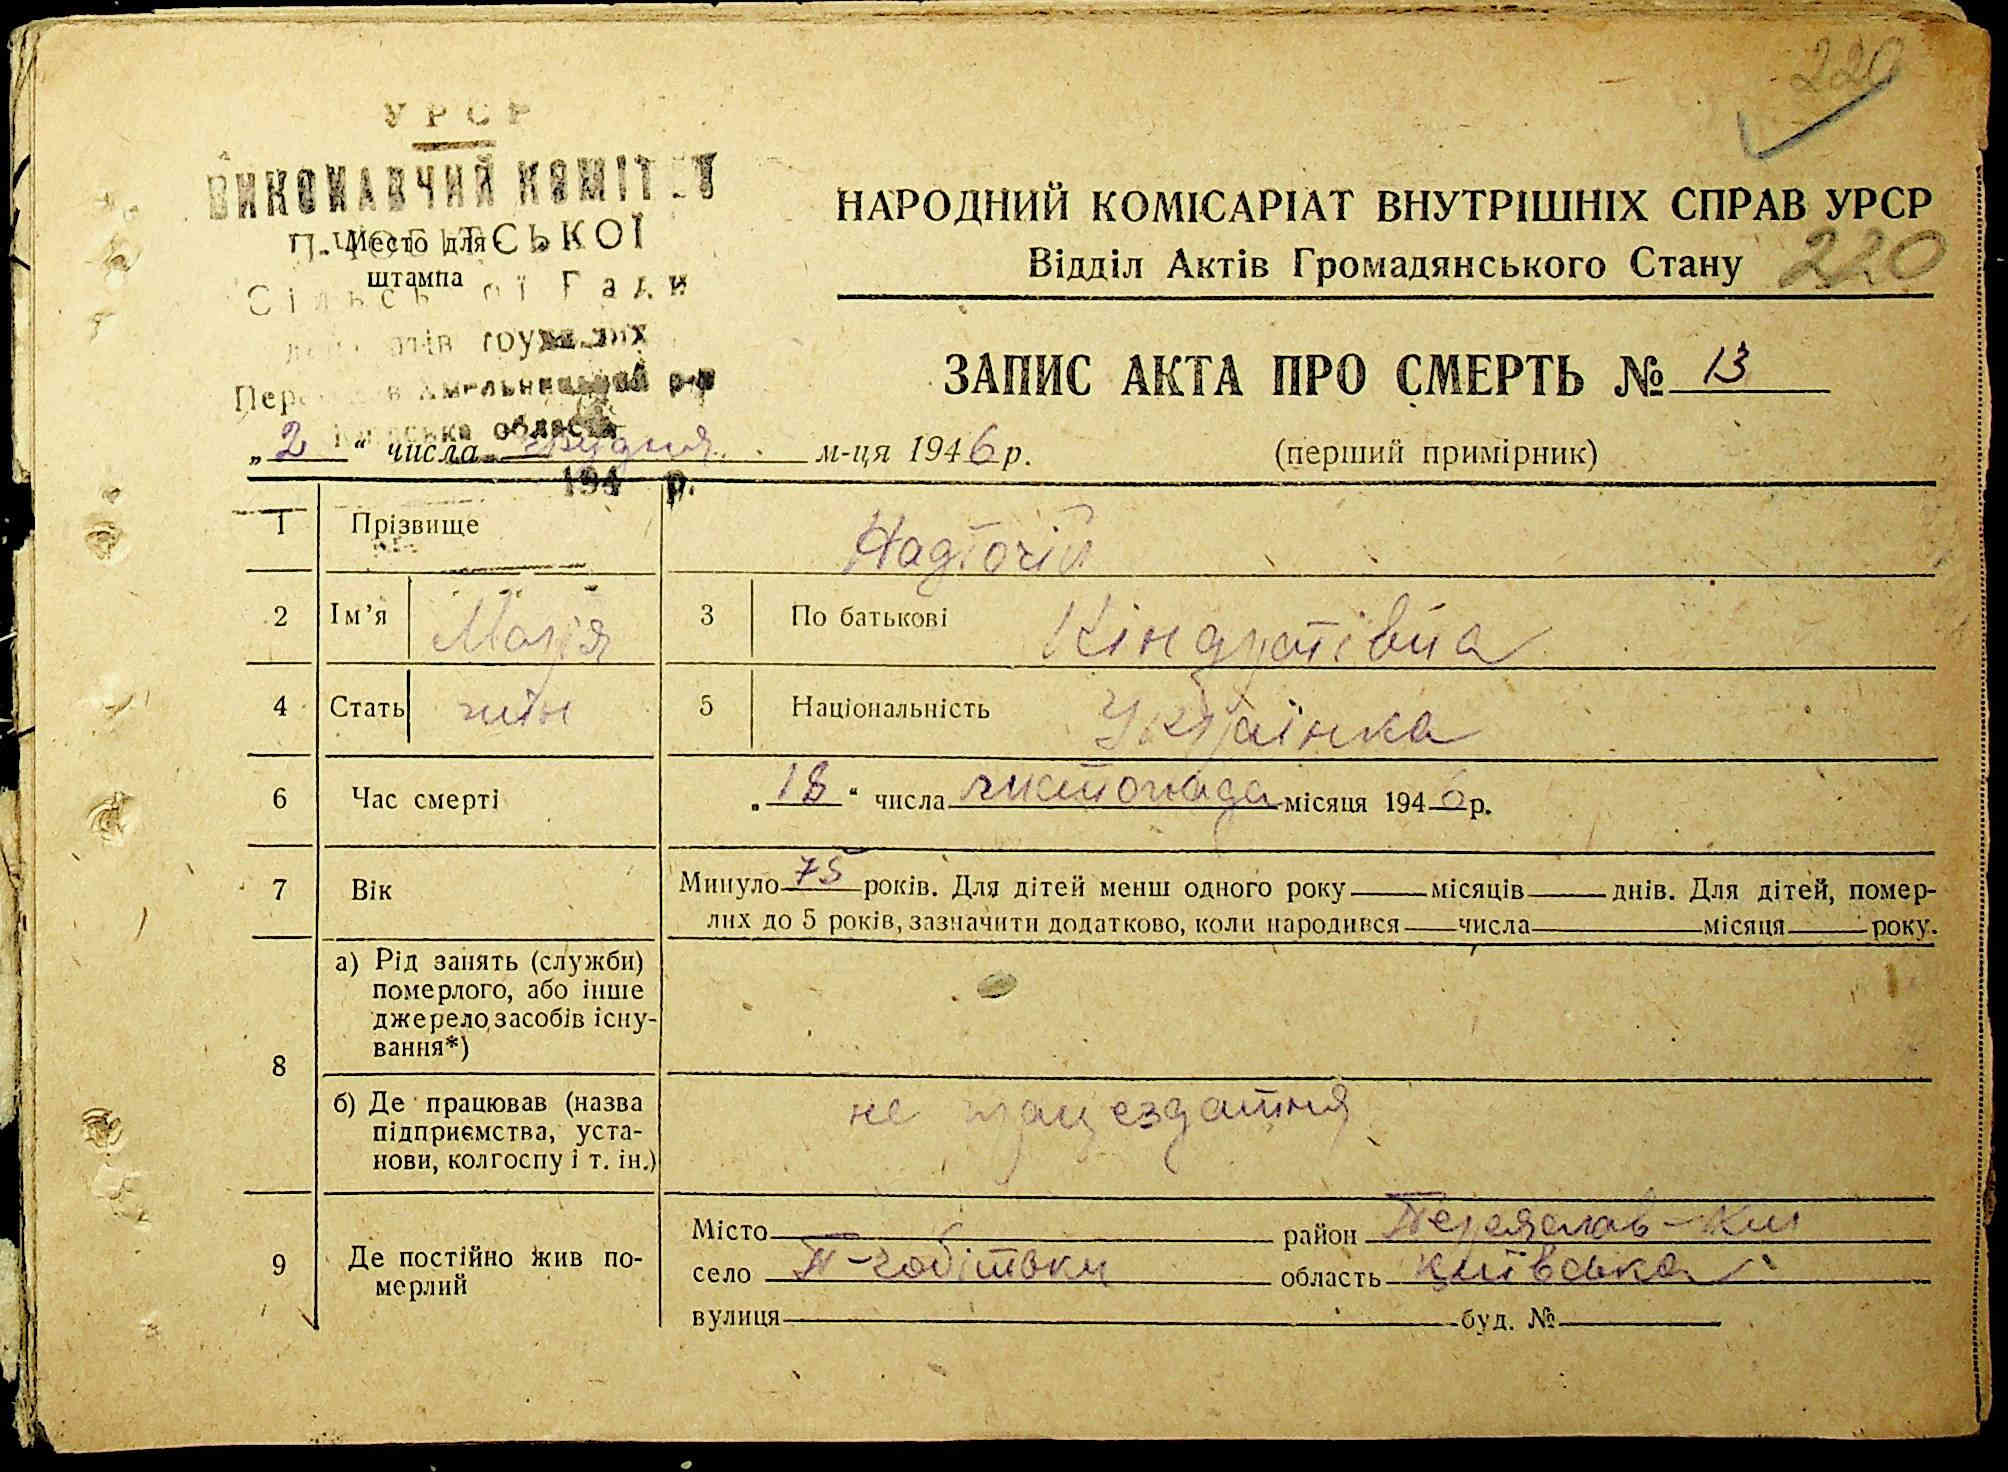 220
УРСР
ВИКОНАВЧИЙ КОМІТЕТ
Место для
штампа
П.-ЧОБІТСЬКОЇ
Сільської Ради
депутатів трудящих
Переяслав Хмельницький р-н
Київська область
194 р.
НАРОДНИЙ КОМІСАРІАТ ВНУТРІШНІХ СПРАВ УРСР
Відділ Актів Громадянського Стану 220
ЗАПИС АКТА ПРО СМЕРТЬ № 13
„2“ числа грудня м-ця 1946 р.
(перший примірник)
1 Прізвище Надточій
2 Ім’я Марія 3 По батькові Кіндратівна
4 Стать жін 5 Національність Українка
6 Час смерті „18“ числа листопада місяця 1946 р.
7 Вік Минуло 75 років. Для дітей менш одного року місяців днів. Для дітей, помер-
лих до 5 років, зазначити додатково, коли народився числа місяця року.
8 а) Рід занять (служби)
померлого, або інше
джерело засобів існу-
вання*)
б) Де працював (назва
підприємства, уста-
нови, колгоспу і т. ін.)
не працездатня
9 Де постійно жив по-
мерлий
Місто район Переяслав-Хм
село П-чобітьки область Київська
вулиця буд. №